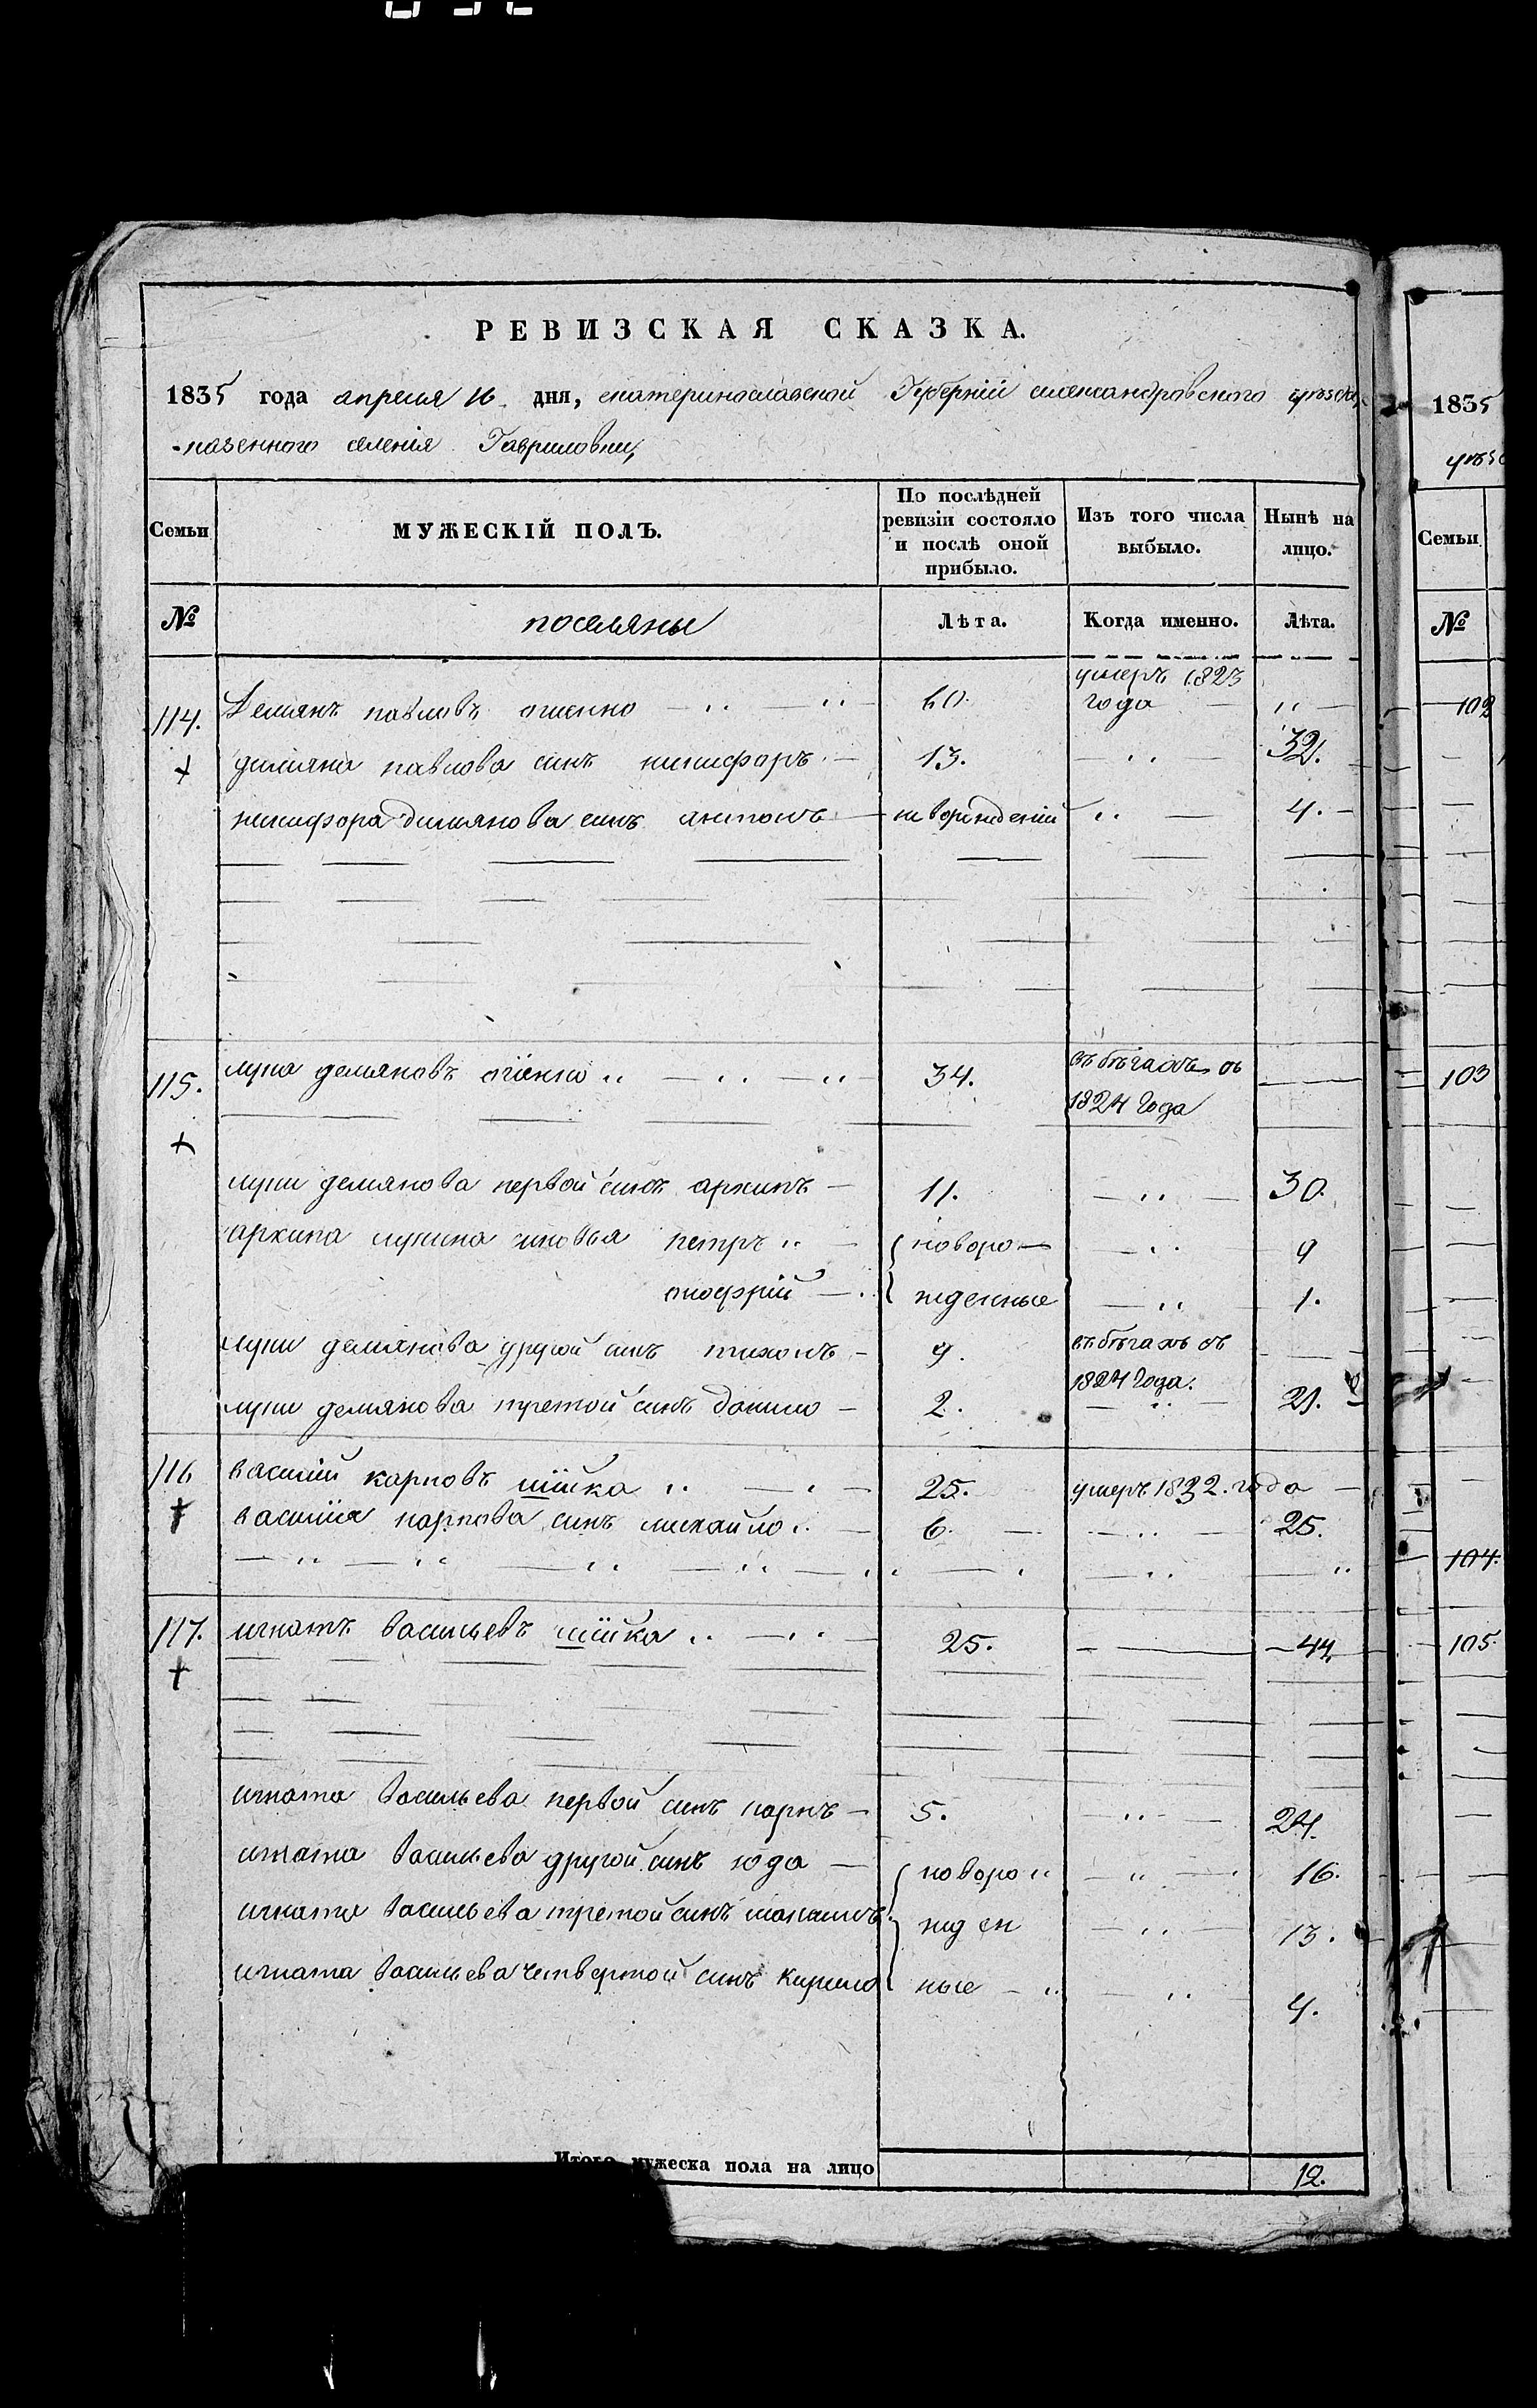 РЕВИЗСКАЯ СКАЗКА.
1835 года апреля 16 дня, екатеринославской Губерніи александровского уезда,
казенного селенія Гавриловки,
Семьи МУЖЕСКІЙ ПОЛЪ. По послѣдней ревизіи состояло и послѣ оной прибыло. Изъ того числа выбыло. Нынѣ на лицо.
№ поселяны Лѣта. Когда именно. Лѣта.
114. Демянъ павловъ 60. умеръ 1823 года
демяна павлова синъ никифоръ 13. 32.
никифора демянова синъ антонъ новорожденій 4.
115. лука демяновъ 34. въ бѣгахъ съ 1824 года
луки демянова первой синъ архипъ 11. 30.
архипа лукина синовья петръ новоро 9
онофрій жденные 1.
луки демянова другой синъ тихонъ 9. въ бѣгахъ съ 1824 года.
луки демянова третой синъ данило 2. 21.
116 василій карповъ шійка 25. умеръ 1832. года
василія карпова синъ михайло 6. 25.
117. игнатъ васильевъ шійка 25. 44.
игната васильева первой синъ карпъ 5. 24.
игната васильева другой синъ юда новоро 16.
игната васильева третой синъ жден 13.
игната васильева четвертой синъ кирило ные 4.
Итого мужеска пола на лицо 12.
1835
Семьи
№
102
103
104.
105.